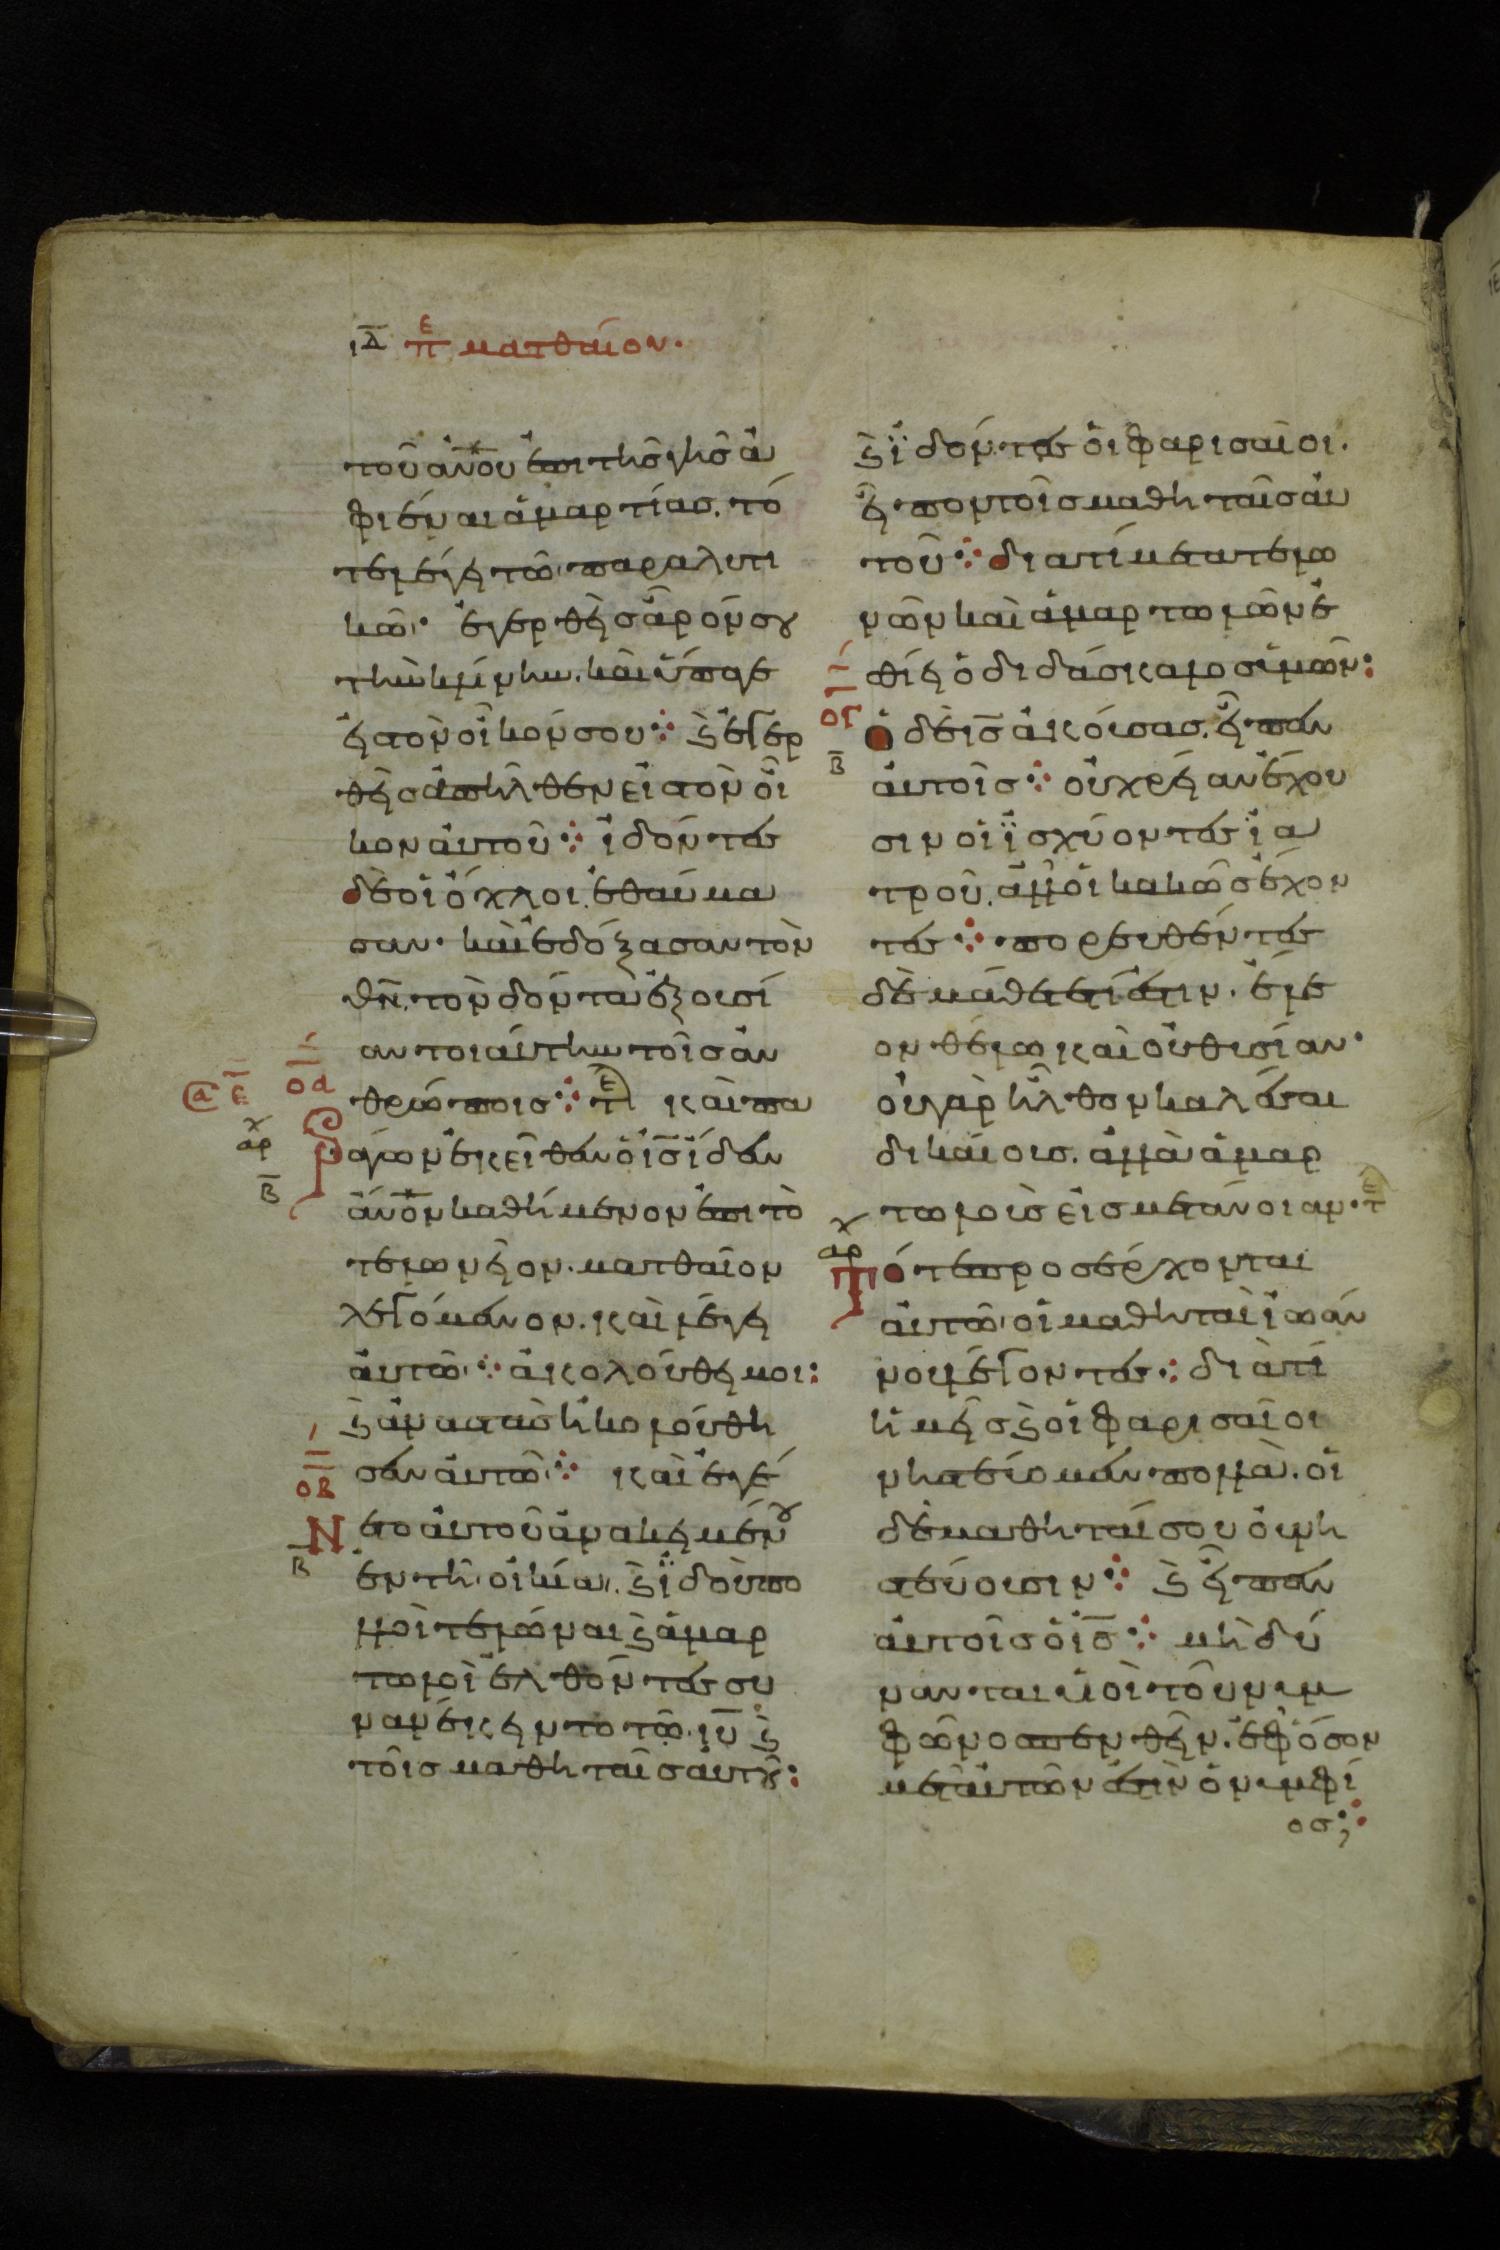 ιδ πε ματθαίον.
τοῦ ἀνου ἐπι τῆς γῆς ἀ
φιέναι ἁμαρτίας. τό
τε λέγει τῶ παραλυτι
κῶ· ἐγερθεὶς ἆρόν σου
τὴν κλίνην. καὶ ὕπαγε
εἰς τὸν οἶκόν σου ⁘ ϗ ἐγερ
θεὶς ἀπῆλθεν εἰς τὸν οἶ
κον αὐτοῦ ⁘ ἰδόντες
δὲ οἱ ὄχλοι. ἐθαύμα
σαν· καὶ ἐδόξασαν τὸν
θν. τὸν δόντα ἐξουσί
αν τοιαύτην τοῖς ἀν
θρώποις ⁘ τε καὶ πα
ράγων ἐκεῖθεν ὁ ις ἴδεν
ἄνον καθήμενον ἐπι τὸ
τελωνεῖον. ματθαῖον
λεγόμενον. καὶ λέγει
αὐτῶ ⁘ ἀκολούθει μοι:
ϗ ἀναστὰς ἠκολούθη
σεν αὐτῶ ⁘ καὶ ἐγέ
Νετο αὐτοῦ ἀνακειμένου
ἐν τῆ οἰκία. ϗ ἰδοὺ πο
λλοὶ τελώναι ϗ ἁμαρ
τωλοὶ ἐλθόντες συ
νανέκειντο τῶ ιυ ϗ
τοῖς μαθηταῖς αυτοῦ:
ϗ ἰδόντες οἱ φαρισαῖοι.
εἶπον τοῖς μαθηταῖς αὐ
τοῦ ⁘ διατί μετα τελω
νῶν καὶ ἁμαρτωλῶν ἐ
σθίει ὁ διδάσκαλος ὑμῶν:
ὁ δὲ ις ἀκούσας. εἶπεν
αὐτοῖς ⁘ οὐ χρείαν ἔχου
σιν οἱ ἰσχύοντες ἰα
τροῦ. ἀλλ οἱ κακῶς ἔχον
τες ⁘ πορευθέντες
δὲ μάθετε τί ἐστιν. ἔλε
ον θέλω καὶ οὐ θυσίαν·
οὐ γὰρ ἦλθον καλέσαι
δικαίους. ἀλλὰ ἁμαρ
τωλοὺς εἰς μετάνοιαν· τε
Τότε προσέρχονται
αὐτῶ οἱ μαθηταὶ ἰωάν
νου λέγοντες ⁘ διὰ τί
ἡμεῖς ϗ οἱ φαρισαῖοι
νηστεύομεν πολλὰ. οἱ
δὲ μαθηταί σου οὐ νη
στεύουσιν ⁘ ϗ εἶπεν
αὐτοῖς ὁ ις ⁘ μὴ δύ
νανται υἱοὶ τοῦ νυμ
φῶνος πενθεῖν. ἐφ ὅσον
μετ αὐτῶν ἐστὶν ὁ νυμφί
ος; ⁘
α ε οα
αρχ
β
οβ
β
ογ
β
αρχ